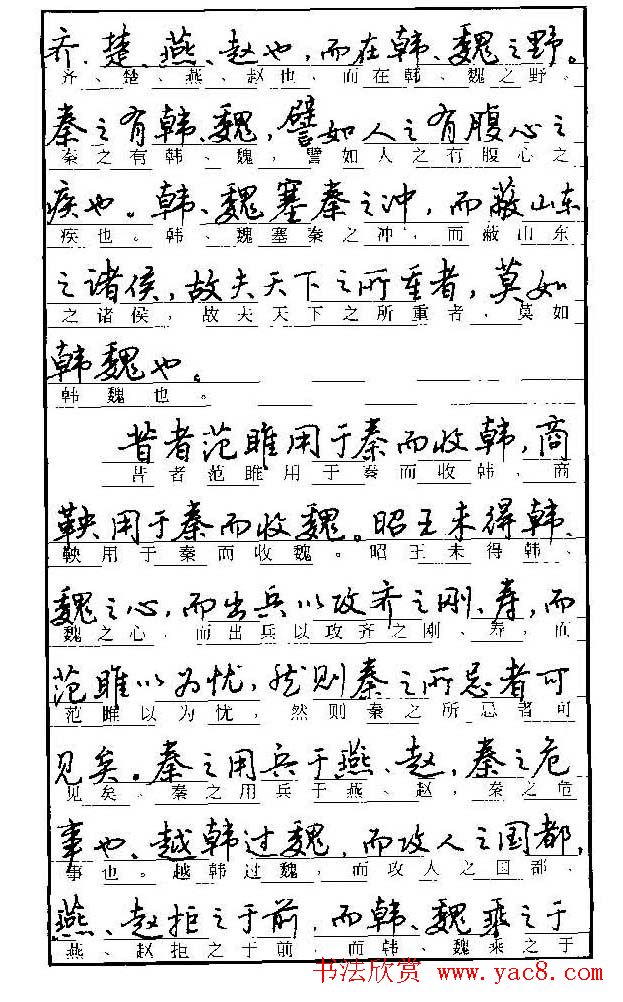 齐、楚、燕、赵也，而在韩、魏之野。
齐、楚、燕、赵也，而在韩、魏之野。
秦之有韩、魏，譬如人之有腹心之
秦之有韩、魏，譬如人之有腹心之
疾也。韩、魏塞秦之冲，而蔽山东
疾也。韩、魏塞秦之冲，而蔽山东
之诸侯，故夫天下之所重者，莫如
之诸侯，故夫天下之所重者，莫如
韩魏也。
韩魏也。
昔者范雎用于秦而收韩，商
昔者范雎用于秦而收韩，商
鞅用于秦而收魏。昭王未得韩、
鞅用于秦而收魏。昭王未得韩、
魏之心，而出兵以攻齐之刚、寿，而
魏之心，而出兵以攻齐之刚、寿，而
范雎以为忧，然则秦之所忌者可
范雎以为忧，然则秦之所忌者可
见矣。秦之用兵于燕、赵，秦之危
见矣。秦之用兵于燕、赵，秦之危
事也。越韩过魏，而攻人之国都，
事也。越韩过魏，而攻人之国都，
燕、赵拒之于前，而韩、魏乘之于
燕、赵拒之于前，而韩、魏乘之于
书法欣赏 www.yac8.com